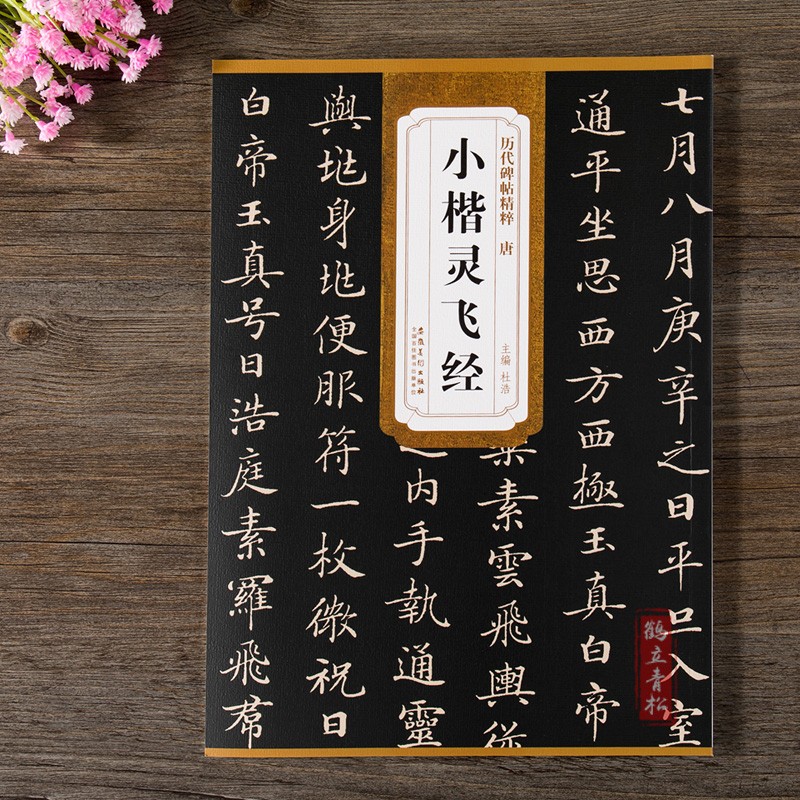 七月八月庚辛之日平旦入室
通平坐思西方西極玉真白帝
素雲飛輿從
历代碑帖精粹 唐
主编 杜浩
小楷灵飞经
安徽美术出版社
全国百佳图书出版单位
内手執通靈
與垗身垗便服符一枚微祝曰
白帝玉真号曰浩庭素羅飛帬
鹤立青松